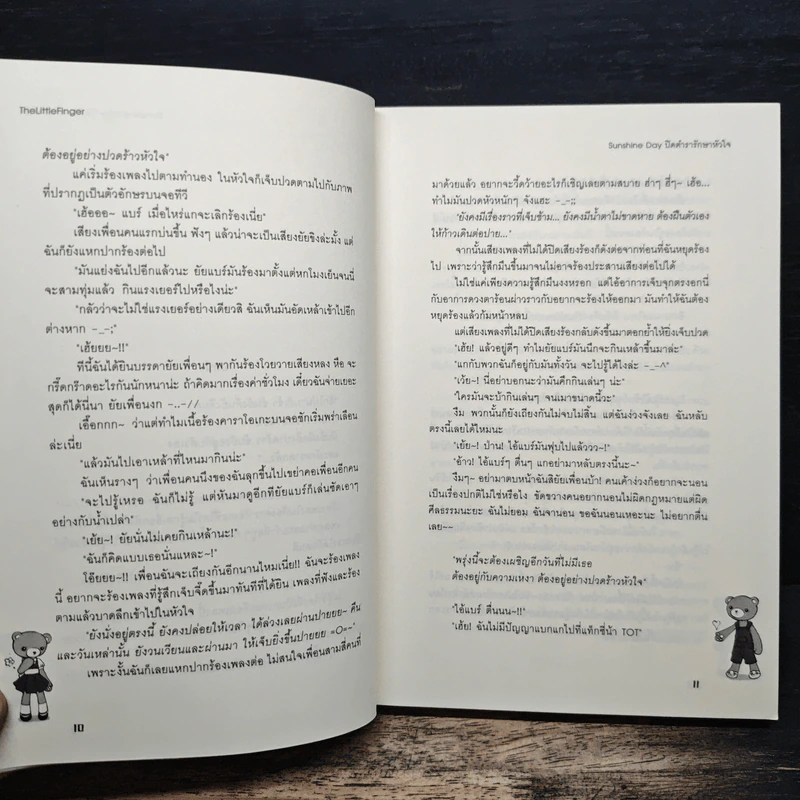 TheLittleFinger
ต้องอยู่อย่างปวดร้าวหัวใจ"
แค่เริ่มร้องเพลงไปตามทำนอง ในหัวใจก็เจ็บปวดตามไปกับภาพ
ที่ปรากฏเป็นตัวอักษรบนจอทีวี
"เฮ้ออออ~ แบร์ เมื่อไหร่แกจะเลิกร้องเนี่ย"
เสียงเพื่อนคนแรกบ่นขึ้น ฟังๆ แล้วน่าจะเป็นเสียงยัยชิงล่ะมั้ง แต่
ฉันก็ยังแหกปากร้องต่อไป
"มันแย่งฉันไปอีกแล้วนะ ยัยแบร์มันร้องมาตั้งแต่หกโมงเย็นจนนี่
จะสามทุ่มแล้ว กินแรงเยอร์ไปหรือไงน่ะ"
"กลัวว่าจะไม่ใช่แรงเยอร์อย่างเดียวสิ ฉันเห็นมันอัดเหล้าเข้าไปอีก
ต่างหาก -_-;"
"เฮ้ยยย~!!"
ทีนี้ฉันได้ยินบรรดายัยเพื่อนๆ พากันร้องโวยวายเสียงหลง หือ จะ
กรี๊ดกร๊าดอะไรกันนักหนาน่ะ ถ้าคิดมากเรื่องค่าชั่วโมง เดี๋ยวฉันจ่ายเยอะ
สุดก็ได้นี่นา ยัยเพื่อนงก -_..-//
เอื๊อกกก~ ว่าแต่ทำไมเนื้อร้องคาราโอเกะบนจอชักเริ่มพร่าเลือน
ล่ะเนี่ย
"แล้วมันไปเอาเหล้าที่ไหนมากินน่ะ"
ฉันเห็นรางๆ ว่าเพื่อนคนนึงของฉันลุกขึ้นไปเขย่าคอเพื่อนอีกคน
"จะไปรู้เหรอ ฉันก็ไม่รู้ แต่หันมาดูอีกทียัยแบร์ก็เล่นซัดเอาๆ
อย่างกับน้ำเปล่า"
"เย้ย~! ยัยนั่นไม่เคยกินเหล้านะ!"
"ฉันก็คิดแบบเธอนั่นแหละ~!"
โอ๊ยยย~!! เพื่อนฉันจะเถียงกันอีกนานไหมเนี่ย!! ฉันจะร้องเพลง
นี้ อยากจะร้องเพลงที่รู้สึกเจ็บจี๊ดขึ้นมาทันทีที่ได้ยิน เพลงที่ฟังและร้อง
ตามแล้วบาดลึกเข้าไปในหัวใจ
"ยังนั่งอยู่ตรงนี้ ยังคงปล่อยให้เวลา ได้ล่วงเลยผ่านปายยย~ คืน
และวันเหล่านั้น ยังวนเวียนและผ่านมา ให้เจ็บยิ่งขึ้นปายยย =O=~"
เพราะงั้นฉันก็เลยแหกปากร้องเพลงต่อ ไม่สนใจเพื่อนสามสี่คนที่
10
Sunshine Day ปิดตำรารักษาหัวใจ
มาด้วยแล้ว อยากจะวี้ดว้ายอะไรก็เชิญเลยตามสบาย ฮ่าๆ ฮี่ๆ~ เฮ้อ...
ทำไมมันปวดหัวหนักๆ จังแฮะ -_-;;
"ยังคงมีเรื่องราวที่เจ็บช้ำ... ยังคงมีน้ำตาไม่ขาดหาย ต้องฝืนตัวเอง
ให้ก้าวเดินต่อปาย..."
จากนั้นเสียงเพลงที่ไม่ได้ปิดเสียงร้องก็ดังต่อจากท่อนที่ฉันหยุดร้อง
ไป เพราะว่ารู้สึกมึนขึ้นมาจนไม่อาจร้องประสานเสียงต่อไปได้
ไม่ใช่แค่เพียงความรู้สึกมึนงงหรอก แต่มันมีอาการเจ็บจุกตรงอกนี่
กับอาการดวงตาร้อนผ่าวราวกับอยากจะร้องไห้ออกมา มันทำให้ฉันต้อง
หยุดร้องแล้วก้มหน้าหลบ
แต่เสียงเพลงที่ไม่ได้ปิดเสียงร้องกลับดังขึ้นมาตอกย้ำให้ยิ่งเจ็บปวด
"เฮ้ย! แล้วอยู่ดีๆ ทำไมยัยแบร์มันนึกจะกินเหล้าขึ้นมาล่ะ"
"แกกับพวกฉันก็อยู่กับมันทั้งวัน จะไปรู้ได้ไงล่ะ -_-^"
"เว้ย~! นี่อย่าบอกนะว่ามันคึกกินเล่นๆ น่ะ"
"ใครมันจะบ้ากินเล่นๆ จนเมาขนาดนี้วะ"
งืม พวกนั้นก็ยังเถียงกันไม่จบไม่สิ้น แต่ฉันง่วงจังเลย ฉันหลับ
ตรงนี้เลยได้ไหมนะ
"เย้ย~! บ้าน! ไอ้แบร์มันฟุบไปแล้ววว~!"
"อ้าว! ไอ้แบร์ๆ ตื่นๆ แกอย่ามาหลับตรงนี้นะ~"
งืมๆ~ อย่ามาตบหน้าฉันสิยัยเพื่อนบ้า! คนเค้าง่วงก็อยากจะนอน
เป็นเรื่องปกติไม่ใช่หรือไง ขัดขวางคนอยากนอนไม่ผิดกฎหมายแต่ผิด
ศีลธรรมนะยะ ฉันไม่ยอม ฉันจานอน ขอฉันนอนเหอะนะ ไม่อยากตื่น
เลย~~
"พรุ่งนี้จะต้องเผชิญอีกวันที่ไม่มีเธอ
ต้องอยู่กับความเหงา ต้องอยู่อย่างปวดร้าวหัวใจ"
"ไอ้แบร์ ตื่นนน~!!"
"เฮ้ย! ฉันไม่มีปัญญาแบกแกไปที่แท็กซี่น้า TOT"
11